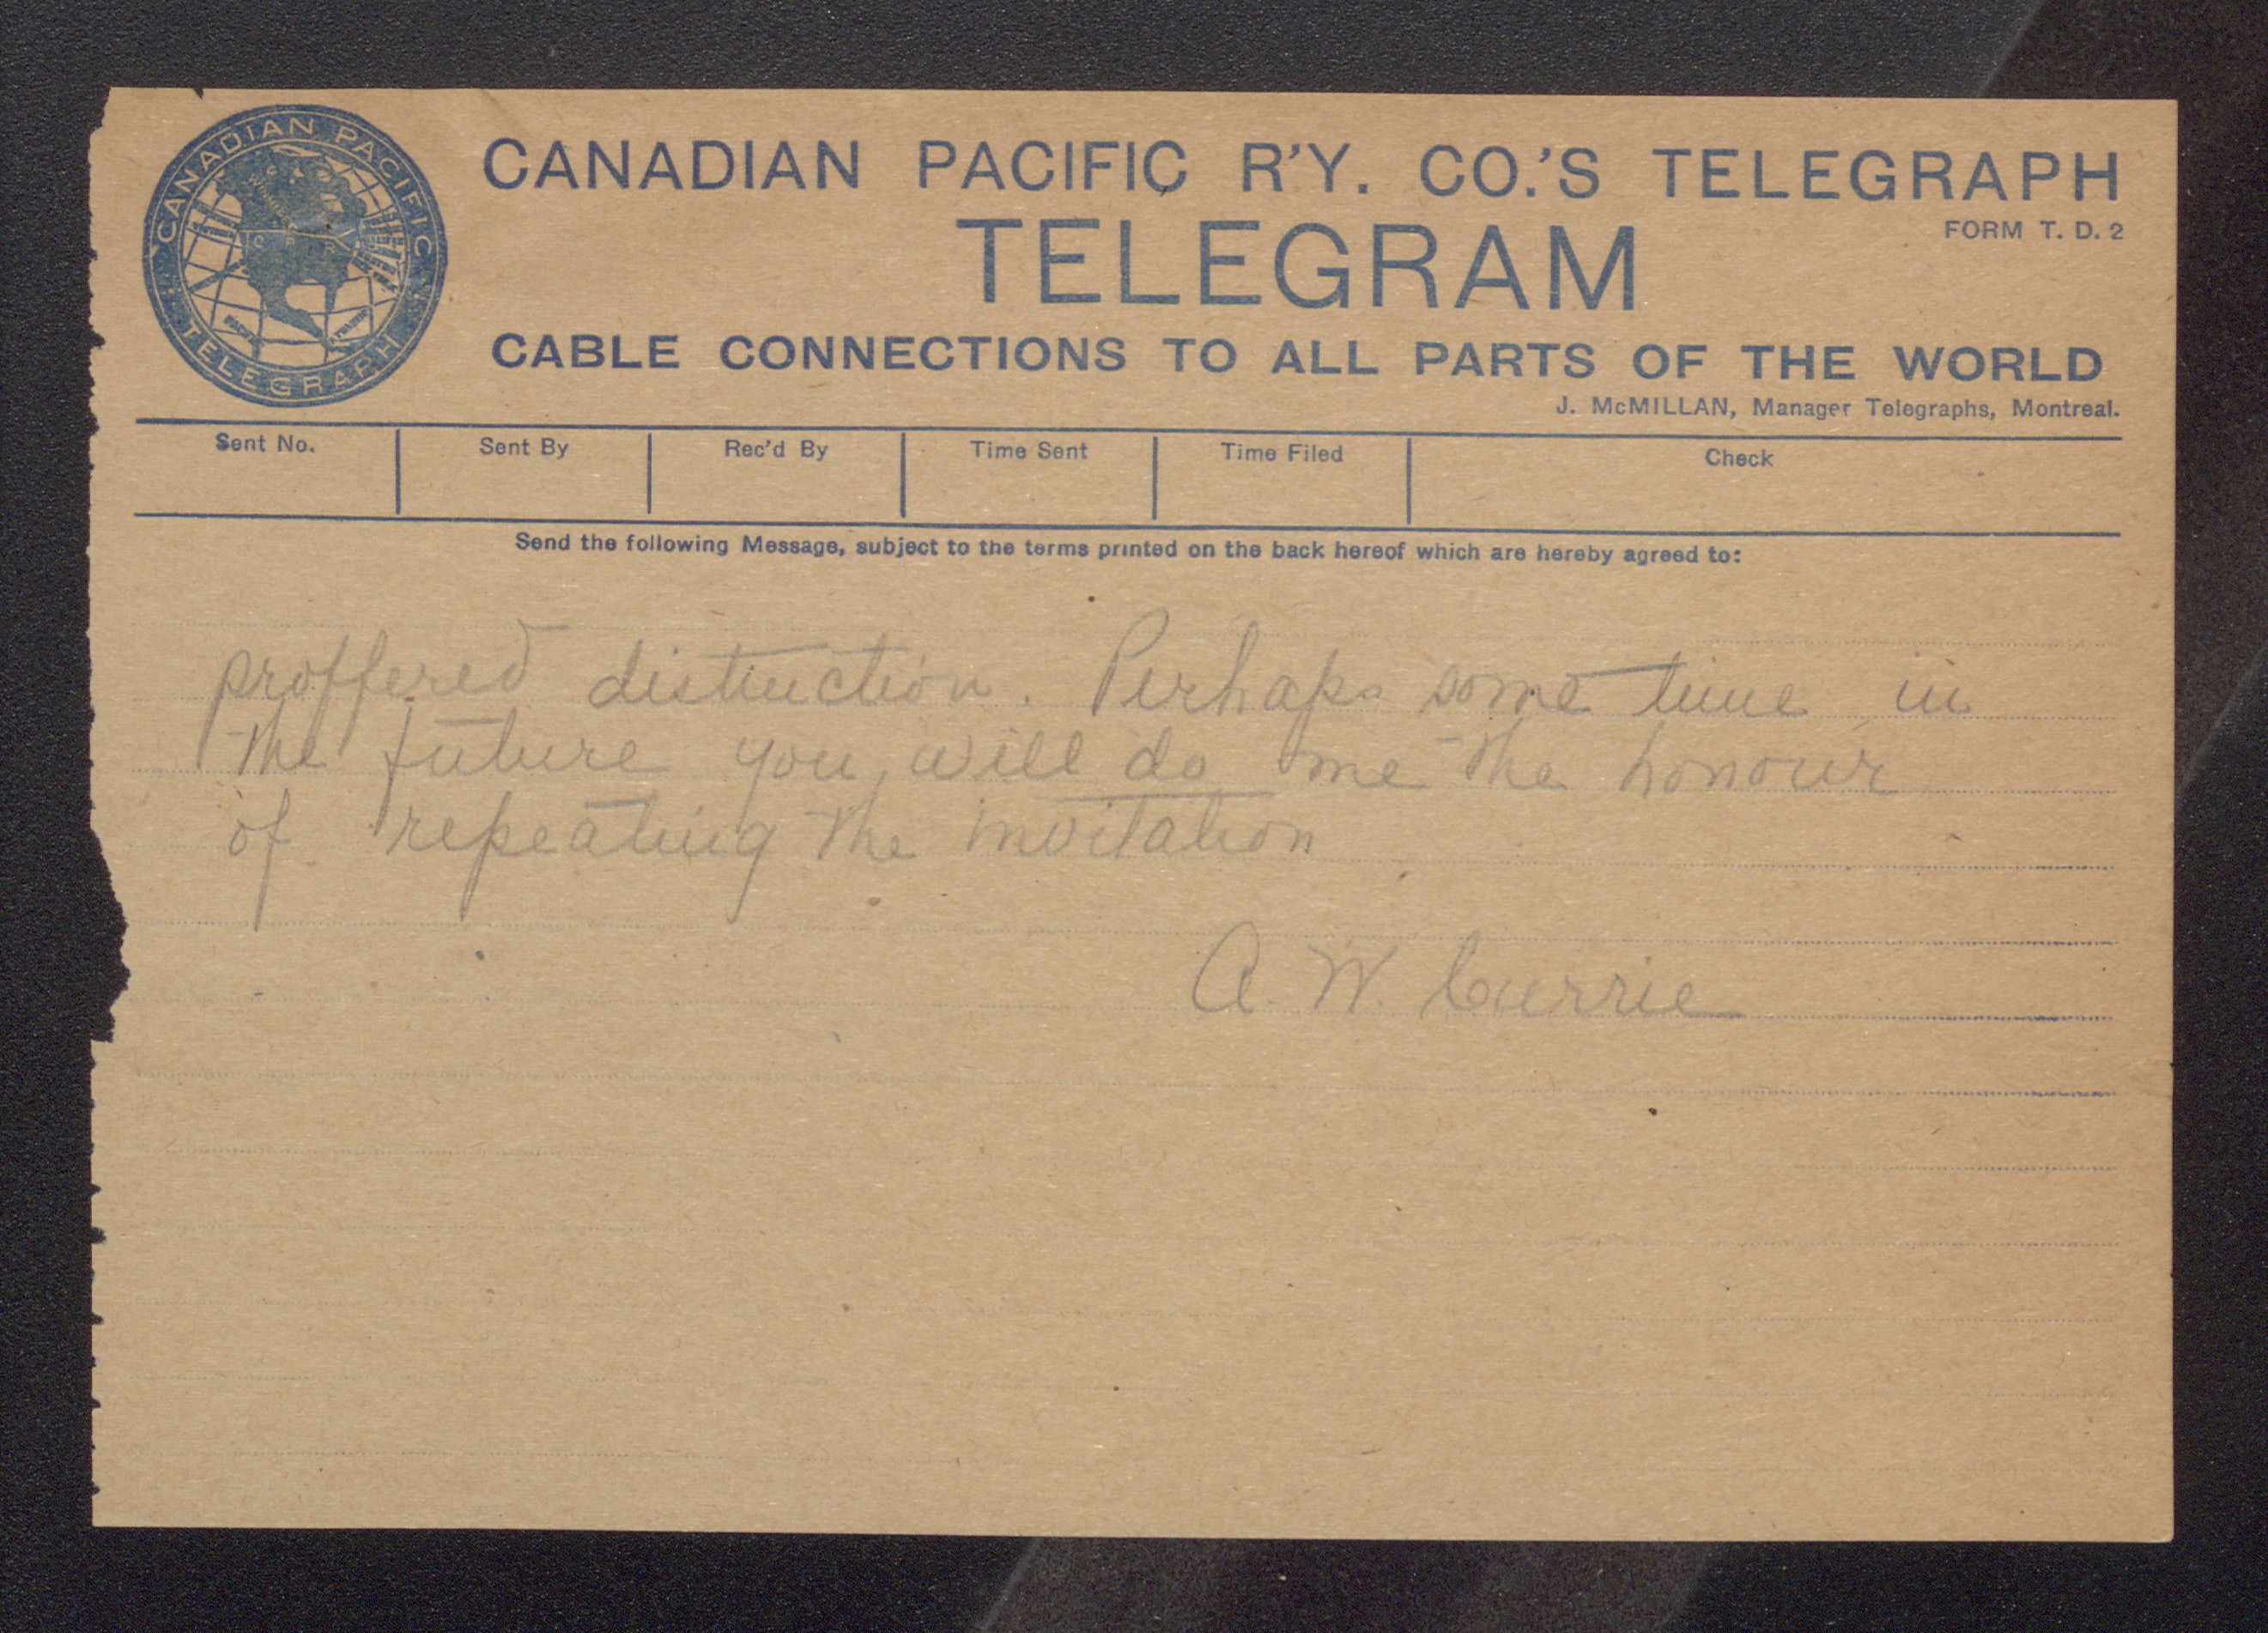 CANADIAN PACIFIC
TELEGRAPH
C P R
CANADIAN PACIFIC R'Y. CO.'S TELEGRAPH
FORM T. D. 2
TELEGRAM
CABLE CONNECTIONS TO ALL PARTS OF THE WORLD
J. McMILLAN, Manager Telegraphs, Montreal.
Sent No. Sent By Rec'd By Time Sent Time Filed Check
Send the following Message, subject to the terms printed on the back hereof which are hereby agreed to:
proffered distinction. Perhaps some time in
the future you will do me the honour
of repeating the invitation
A. W. Currie